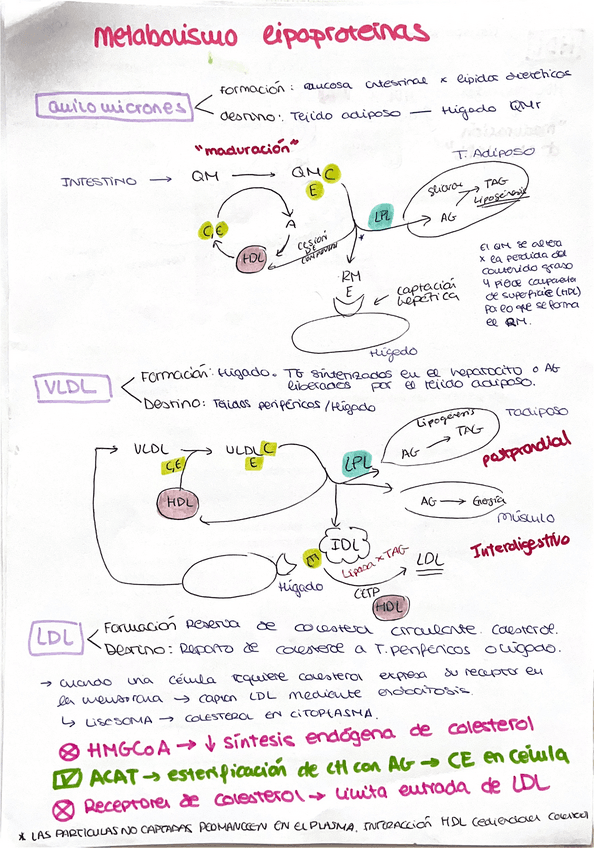 Metabolismo lipoproteínas
quilomicrones
Formación: mucosa intestinal x lípidos dietéticos
destino: Tejido adiposo — Hígado QMr
"maduración"
T. Adiposo
INTESTINO → QM → QM C
E
LPL
AG → TAG
Lipogénesis
C,E
A
HDL
cesión
DE
RM
E
captación
hepática
Hígado
El QM se altera
x la pérdida del
contenido graso
y pierde
de superficie (HDL)
por lo que se forma
el QMr.
VLDL
Formación: Hígado. TG sintetizados en el hepatocito o AG
liberados por el tejido adiposo.
Destino: Tejidos periféricos / Hígado
VLDL → VLDL C
E
C,E
HDL
LPL
Lipogenesis
AG → TAG
T adiposo
postprandial
AG → Energía
Músculo
Interdigestivo
IDL
E
Hígado
Lipasa x TAG
LDL
CETP
HDL
LDL
Formación Reserva de colesterol circulante. Colesterol.
Destino: Reparto de colesterol a T. periféricos o hígado.
→ cuando una célula requiere colesterol expresa su receptor en
la membrana → captan LDL mediante endocitosis.
↳ LISOSOMA → COLESTEROL EN CITOPLASMA.
HMGCoA → ↓ síntesis endógena de colesterol
ACAT → esterificación de CH con AG → CE en célula
Receptores de colesterol → Limita entrada de LDL
* LAS PARTICULAS NO CAPTADAS PERMANECEN EN EL PLASMA. INTERACCIÓN HDL